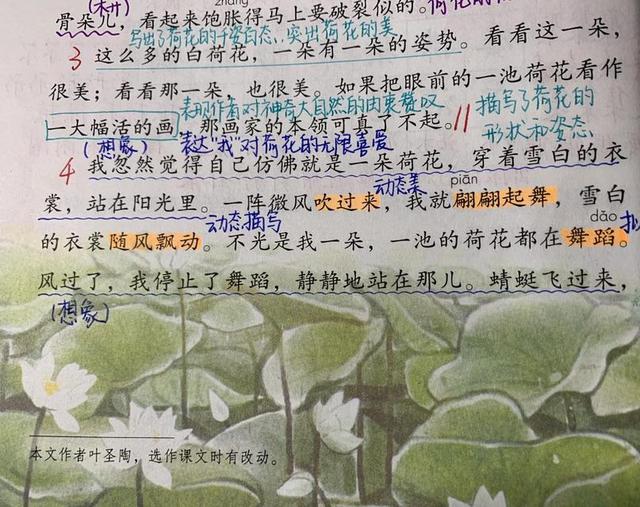 (未开) zhàng
骨朵儿，看起来饱胀得马上要破裂似的。荷花的
写出了荷花的千姿百态，突出荷花的美
3 这么多的白荷花，一朵有一朵的姿势。看看这一朵，
很美；看看那一朵，也很美。如果把眼前的一池荷花看作
表现作者对神奇大自然的由衷赞叹 描写了荷花的
一大幅活的画，那画家的本领可真了不起。11 形状和姿态
(想象) 表达“我”对荷花的无限喜爱
4 我忽然觉得自己仿佛就是一朵荷花，穿着雪白的衣
动态美 piān
裳，站在阳光里。一阵微风吹过来，我就翩翩起舞，雪白
动态描写 dǎo
的衣裳随风飘动。不光是我一朵，一池的荷花都在舞蹈。
风过了，我停止了舞蹈，静静地站在那儿。蜻蜓飞过来，
(想象)
本文作者叶圣陶，选作课文时有改动。